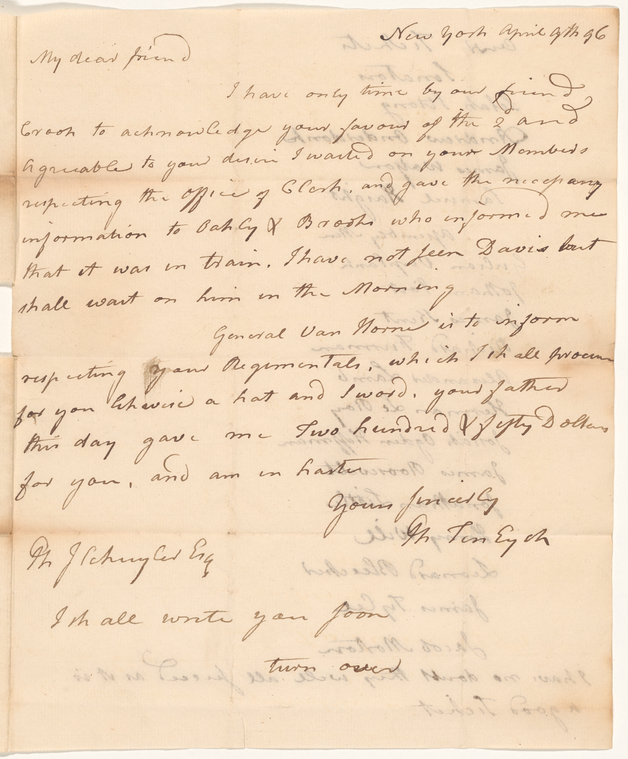 New York April 9th 96
My dear friend
I have only time by our friend
Crook to acknowledge your favour of the 2d and
agreable to your desire I waited on your Members
respecting the Office of Clerk, and gave the necessary
information to Oakley & Brooks who informed me
that it was in train. I have not seen Davis but
shall wait on him in the Morning
General Van Horne is to inform
respecting your Regimentals, which I shall procure
for you likewise a hat and Sword, your father
this day gave me Two hundred & fifty Dollars
for you, and am in haste
Yours sincerly
Ph Ten Eyck
Ph J Schuyler Esq
I shall write you soon
turn over